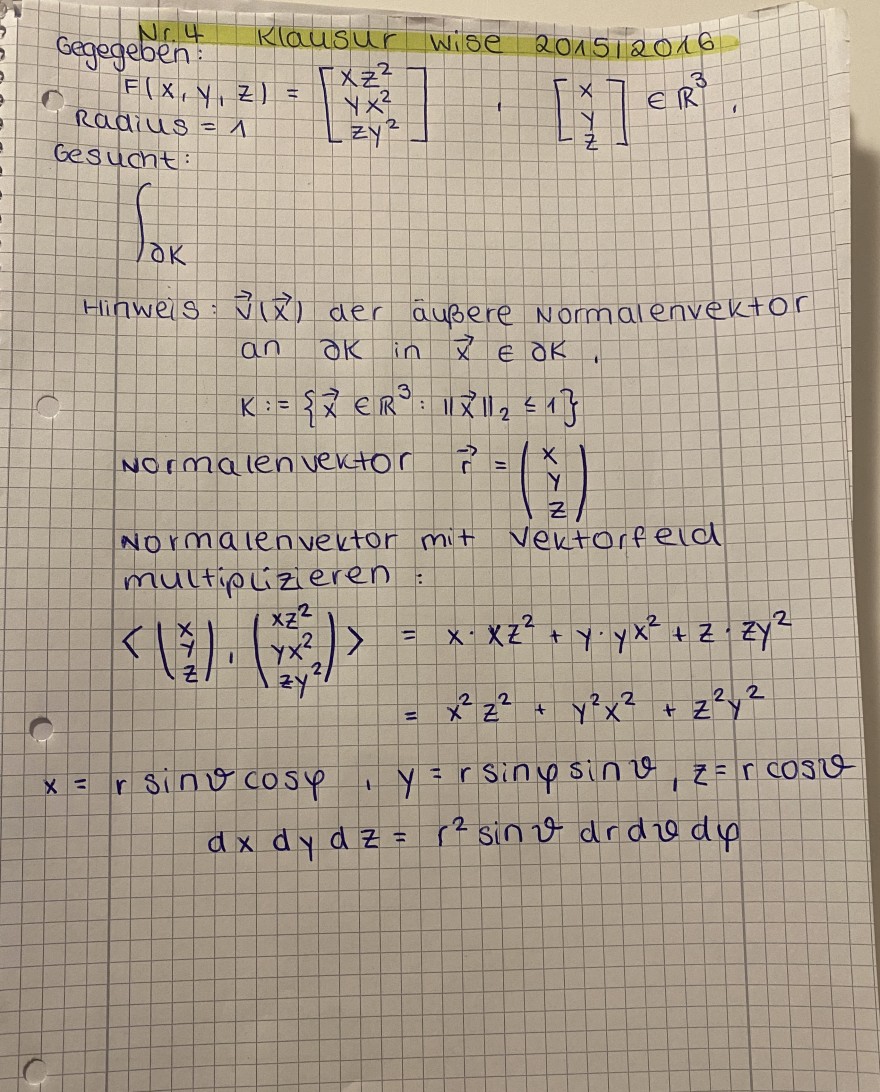 Nr. 4 Klausur wise 2015/2016
Gegegeben:
F(x, y, z) = [xz² yx² zy²] , [x y z] ∈ ℝ³ ,
Radius = 1
Gesucht:
∫∂K
Hinweis: v⃗(x⃗) der äußere Normalenvektor
an ∂K in x⃗ ∈ ∂K .
K := {x⃗ ∈ ℝ³ : ||x⃗||₂ ≤ 1}
Normalenvektor r⃗ = (x y z)
Normalenvektor mit Vektorfeld
multiplizieren :
< (x y z) , (xz² yx² zy²) > = x · xz² + y · yx² + z · zy²
= x² z² + y²x² + z²y²
x = r sinϑ cosφ , y = r sinφ sinϑ , z = r cosϑ
dx dy dz = r² sinϑ dr dϑ dφ